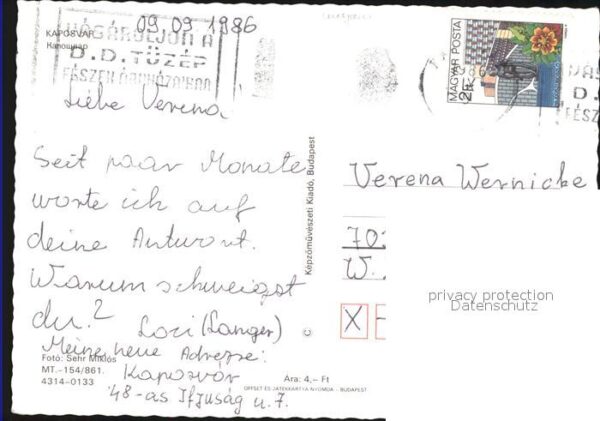 09 09 1986
KAPOSVÁR
VÁSÁROLJON A
D.D. TÜZÉP
MAGYAR POSTA
2Ft
Liebe Verena
Seit paar Monate
worte ich auf
deine Antwort.
Warum schweigst
du?
Loci (Langer)
Meine neue Adresse:
Kaposvár
'48-as Ifjuság u. 7.
Fotó: Sehr Miklós
MT.-154/861.
4314-0133
Ára: 4,– Ft
OFFSET ÉS JÁTÉKKÁRTYA NYOMDA – BUDAPEST
Képzőművészeti Kiadó, Budapest
©
Verena Wernicke
70
W.
X
privacy protection
Datenschutz